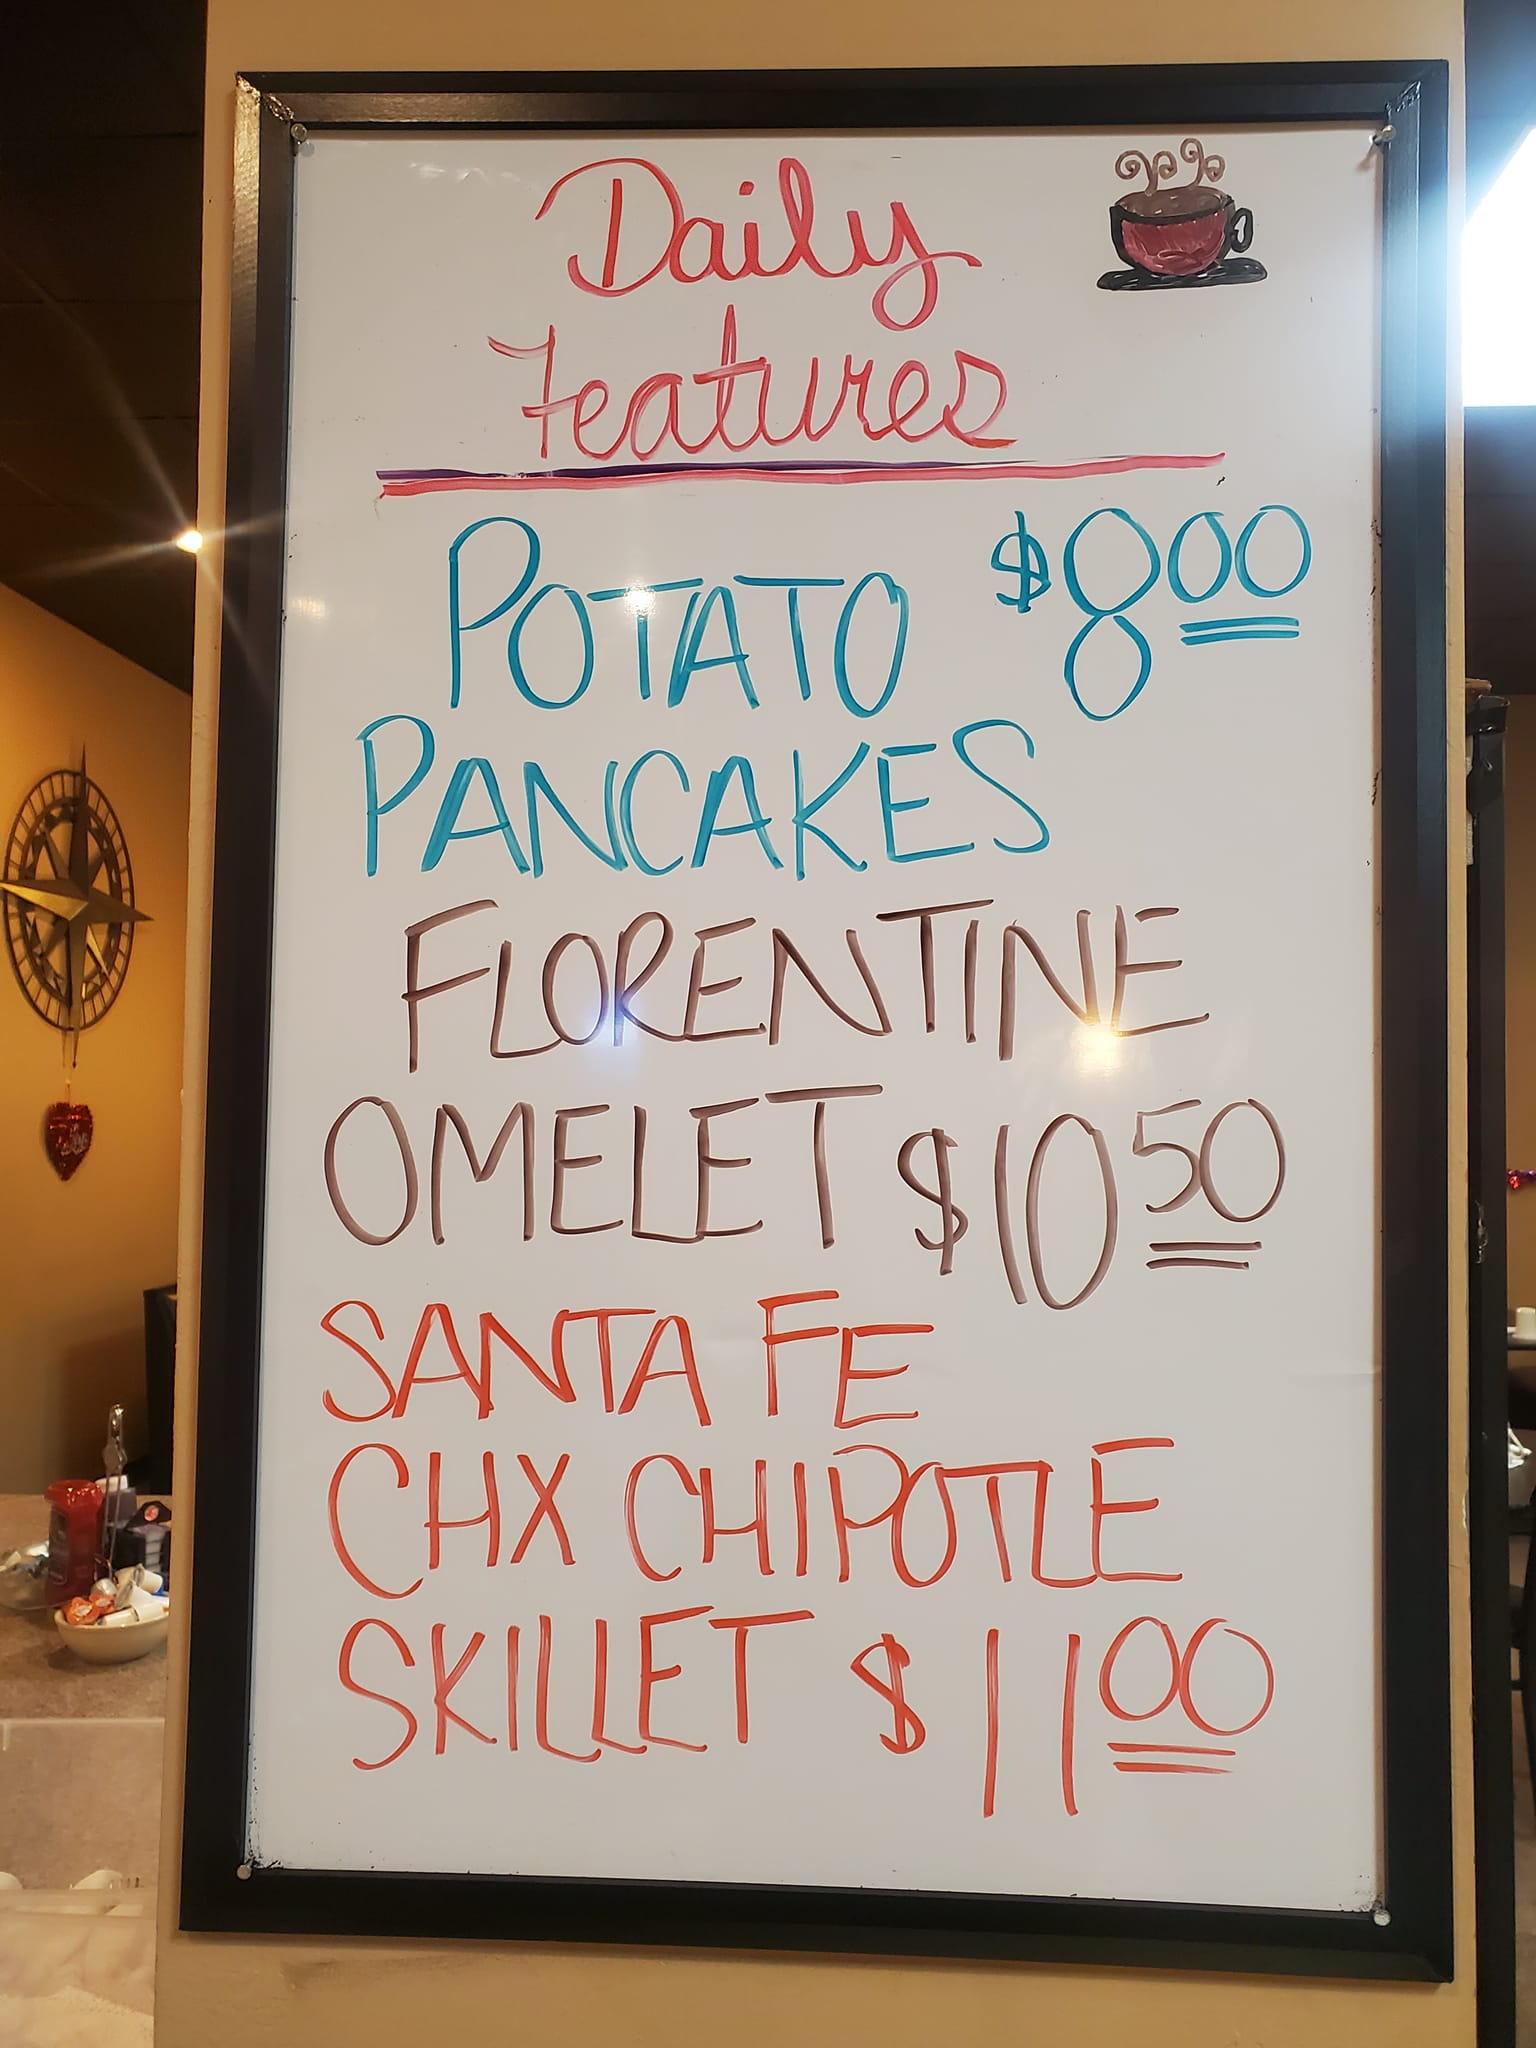 Daily
Features
POTATO $8.00
PANCAKES
FLORENTINE
OMELET $10.50
SANTA FE
CHX CHIPOTLE
SKILLET $11.00